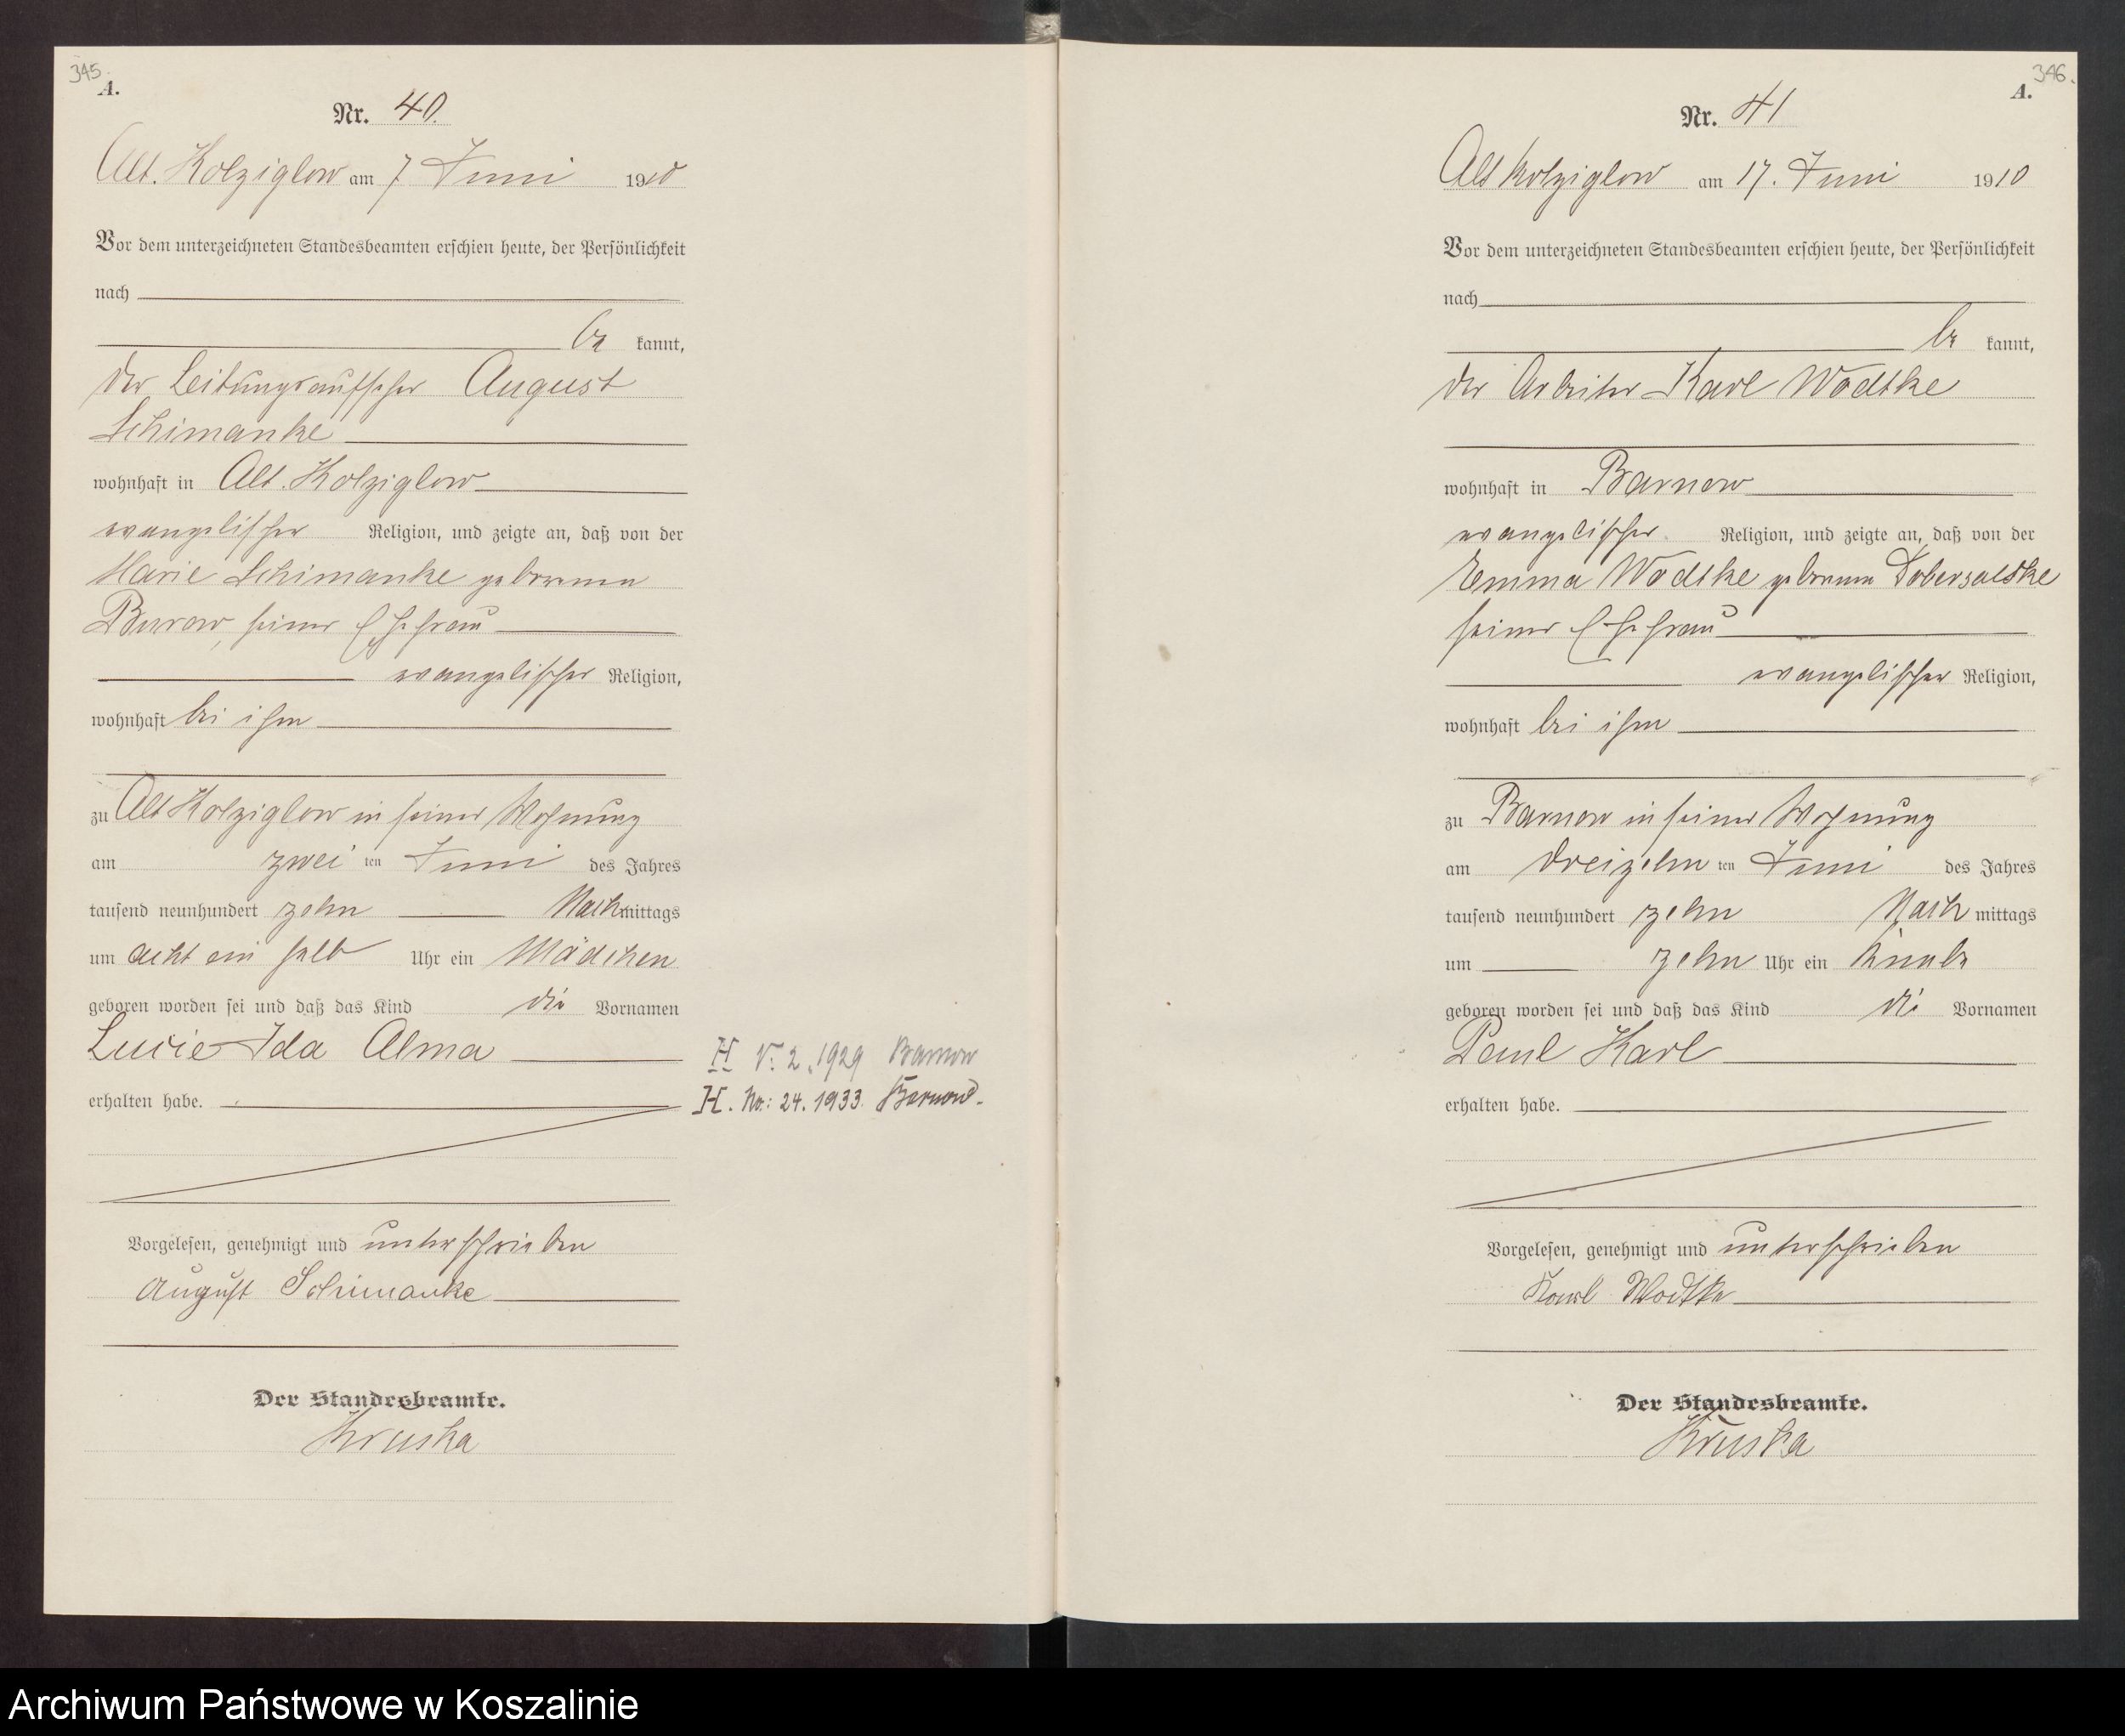 345.
A.
Nr. 40.
Alt. Kolziglow am 7 Juni 1910
Vor dem unterzeichneten Standesbeamten erschien heute, der Persönlichkeit
nach
be kannt,
der Leitungsaufseher August
Schimanke
wohnhaft in Alt. Kolziglow
evangelischer Religion, und zeigte an, daß von der
Marie Schimanke geborenen
Burow, seiner Ehefrau
evangelischer Religion,
wohnhaft bei ihm
zu Alt Kolziglow in seiner Wohnung
am zwei ten Juni des Jahres
tausend neunhundert zehn Nachmittags
um acht ein halb Uhr ein Mädchen
geboren worden sei und daß das Kind die Vornamen
Lucie Ida Alma
erhalten habe.
H V. 2, 1929 Barnow
H. No.: 24. 1933. Barnow.
Vorgelesen, genehmigt und unterschrieben
August Schimanke
Der Standesbeamte.
Kruska
346.
A.
Nr. 41
Alt Kolziglow am 17. Juni 1910
Vor dem unterzeichneten Standesbeamten erschien heute, der Persönlichkeit
nach
be kannt,
der Arbeiter Karl Wodtke
wohnhaft in Barnow
evangelischer Religion, und zeigte an, daß von der
Emma Wodtke geborenen Dobersalske
seiner Ehefrau
evangelischer Religion,
wohnhaft bei ihm
zu Barnow in seiner Wohnung
am dreizehn ten Juni des Jahres
tausend neunhundert zehn Nach mittags
um zehn Uhr ein Knabe
geboren worden sei und daß das Kind die Vornamen
Paul Karl
erhalten habe.
Vorgelesen, genehmigt und unterschrieben
Karl Wodtke
Der Standesbeamte.
Kruska
Archiwum Państwowe w Koszalinie